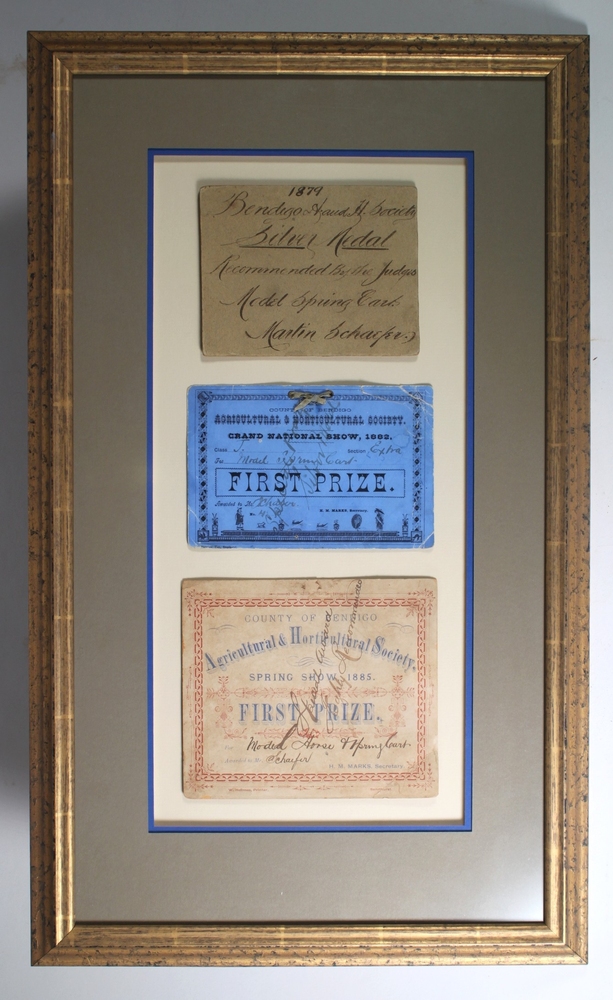 1879
Bendigo A and H. Society
Silver Medal
Recommended By the Judges
Model Spring Cart
Martin Schaefer
COUNTY OF BENDIGO
AGRICULTURAL & HORTICULTURAL SOCIETY.
GRAND NATIONAL SHOW, 1882.
Class Section Extra
For Model Spring Cart
FIRST PRIZE.
Awarded to Mr
H. W. MARKS, Secretary.
COUNTY OF BENDIGO
Agricultural & Horticultural Society,
SPRING SHOW, 1885.
FIRST PRIZE.
For Model Horse & Spring Cart
Awarded to Mr. Schaefer
H. W. MARKS, Secretary.
Highly Recommended